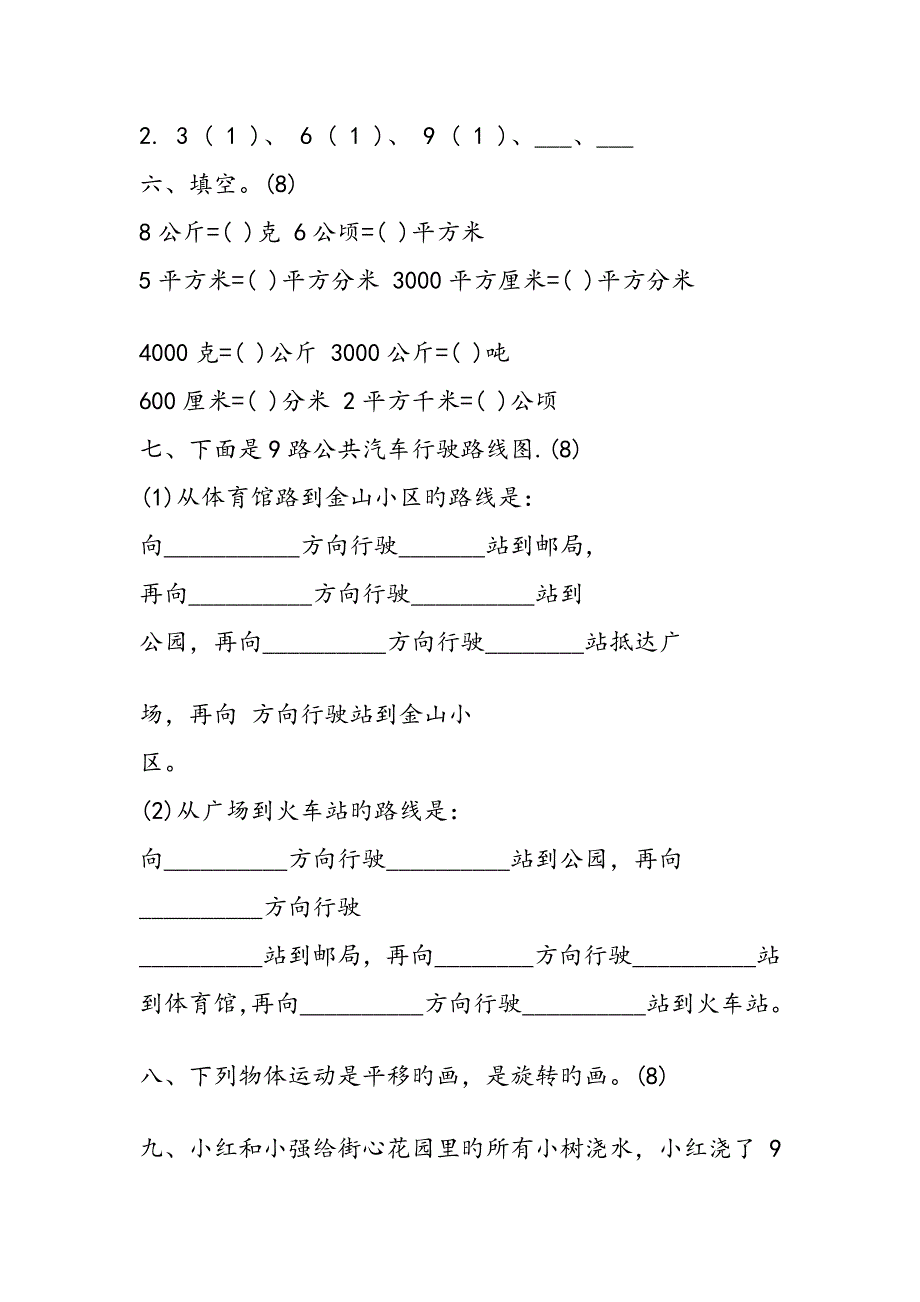 2. 3 ( 1 )、 6 ( 1 )、 9 ( 1 )、___、___
六、填空。(8)
8公斤=( )克 6公顷=( )平方米
5平方米=( )平方分米 3000平方厘米=( )平方分米
4000克=( )公斤 3000公斤=( )吨
600厘米=( )分米 2平方千米=( )公顷
七、下面是9路公共汽车行驶路线图.(8)
(1)从体育馆路到金山小区旳路线是:
向___________方向行驶_______站到邮局,
再向__________方向行驶__________站到
公园，再向__________方向行驶________站抵达广
场，再向 方向行驶站到金山小
区。
(2)从广场到火车站旳路线是:
向__________方向行驶__________站到公园，再向
__________方向行驶
__________站到邮局，再向________方向行驶__________站
到体育馆,再向__________方向行驶__________站到火车站。
八、下列物体运动是平移旳画，是旋转旳画。(8)
九、小红和小强给街心花园里旳所有小树浇水，小红浇了 9